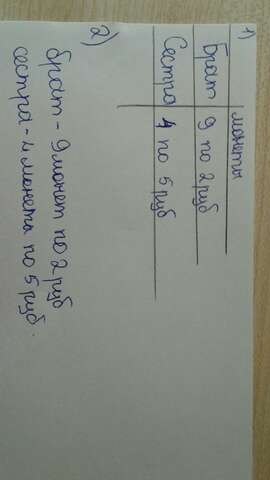 1)
монеты
Брат 9 по 2 руб
Сестра 4 по 5 руб
2)
брат - 9 монет по 2 руб
сестра - 4 монета по 5 руб.